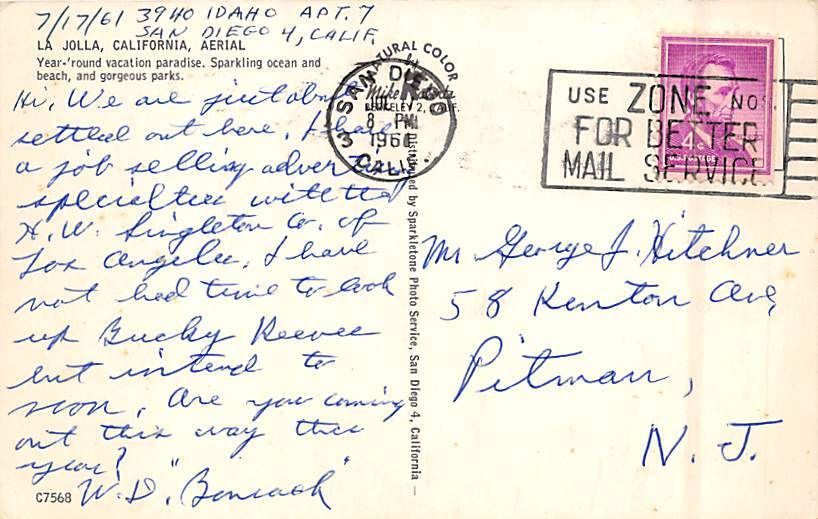 7/17/61 3940 IDAHO APT. 7
SAN DIEGO 4, CALIF.
LA JOLLA, CALIFORNIA, AERIAL
Year-'round vacation paradise. Sparkling ocean and
beach, and gorgeous parks.
Hi, We are just about
settled out here. I have
a job selling advertising
specialties with the
H. W. Singleton Co. of
Los Angeles. I have
not had time to look
up Bucky Reeves
but intend to
soon. Are you coming
out this way this
year?
W. D.
C7568
NATURAL COLOR
by
Mike Roberts
BERKELEY 2, CALIF.
Distributed by Sparkletone Photo Service, San Diego 4, California
SAN DIEGO
JUL
8 PM
CALIF.
3
USE ZONE NO
FOR BETTER
MAIL SERVICE
4¢
Mr George J. Hitchner
58 Kenton Ave,
Pitman,
N. J.